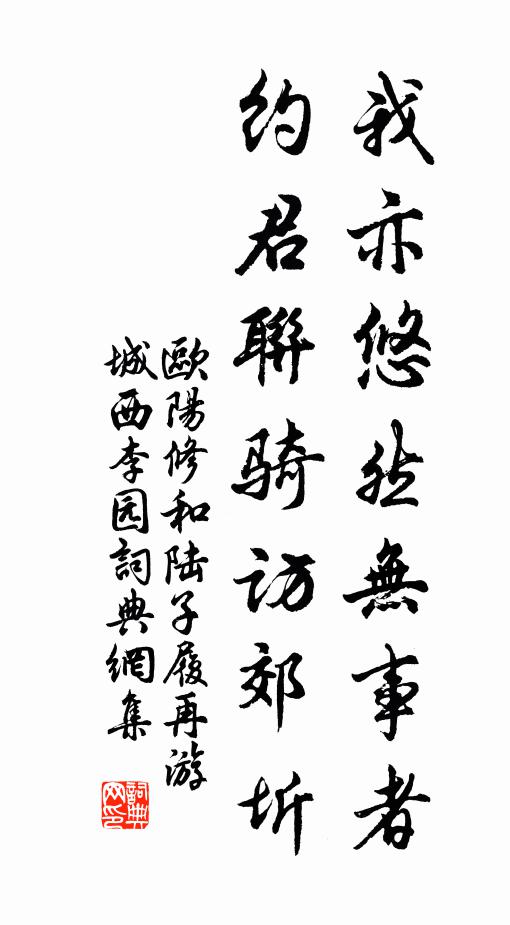 我亦悠然無事者
約君聯骑訪郊圻
歐陽修和陆子履再游
城西李园詞典網集
詞典网印